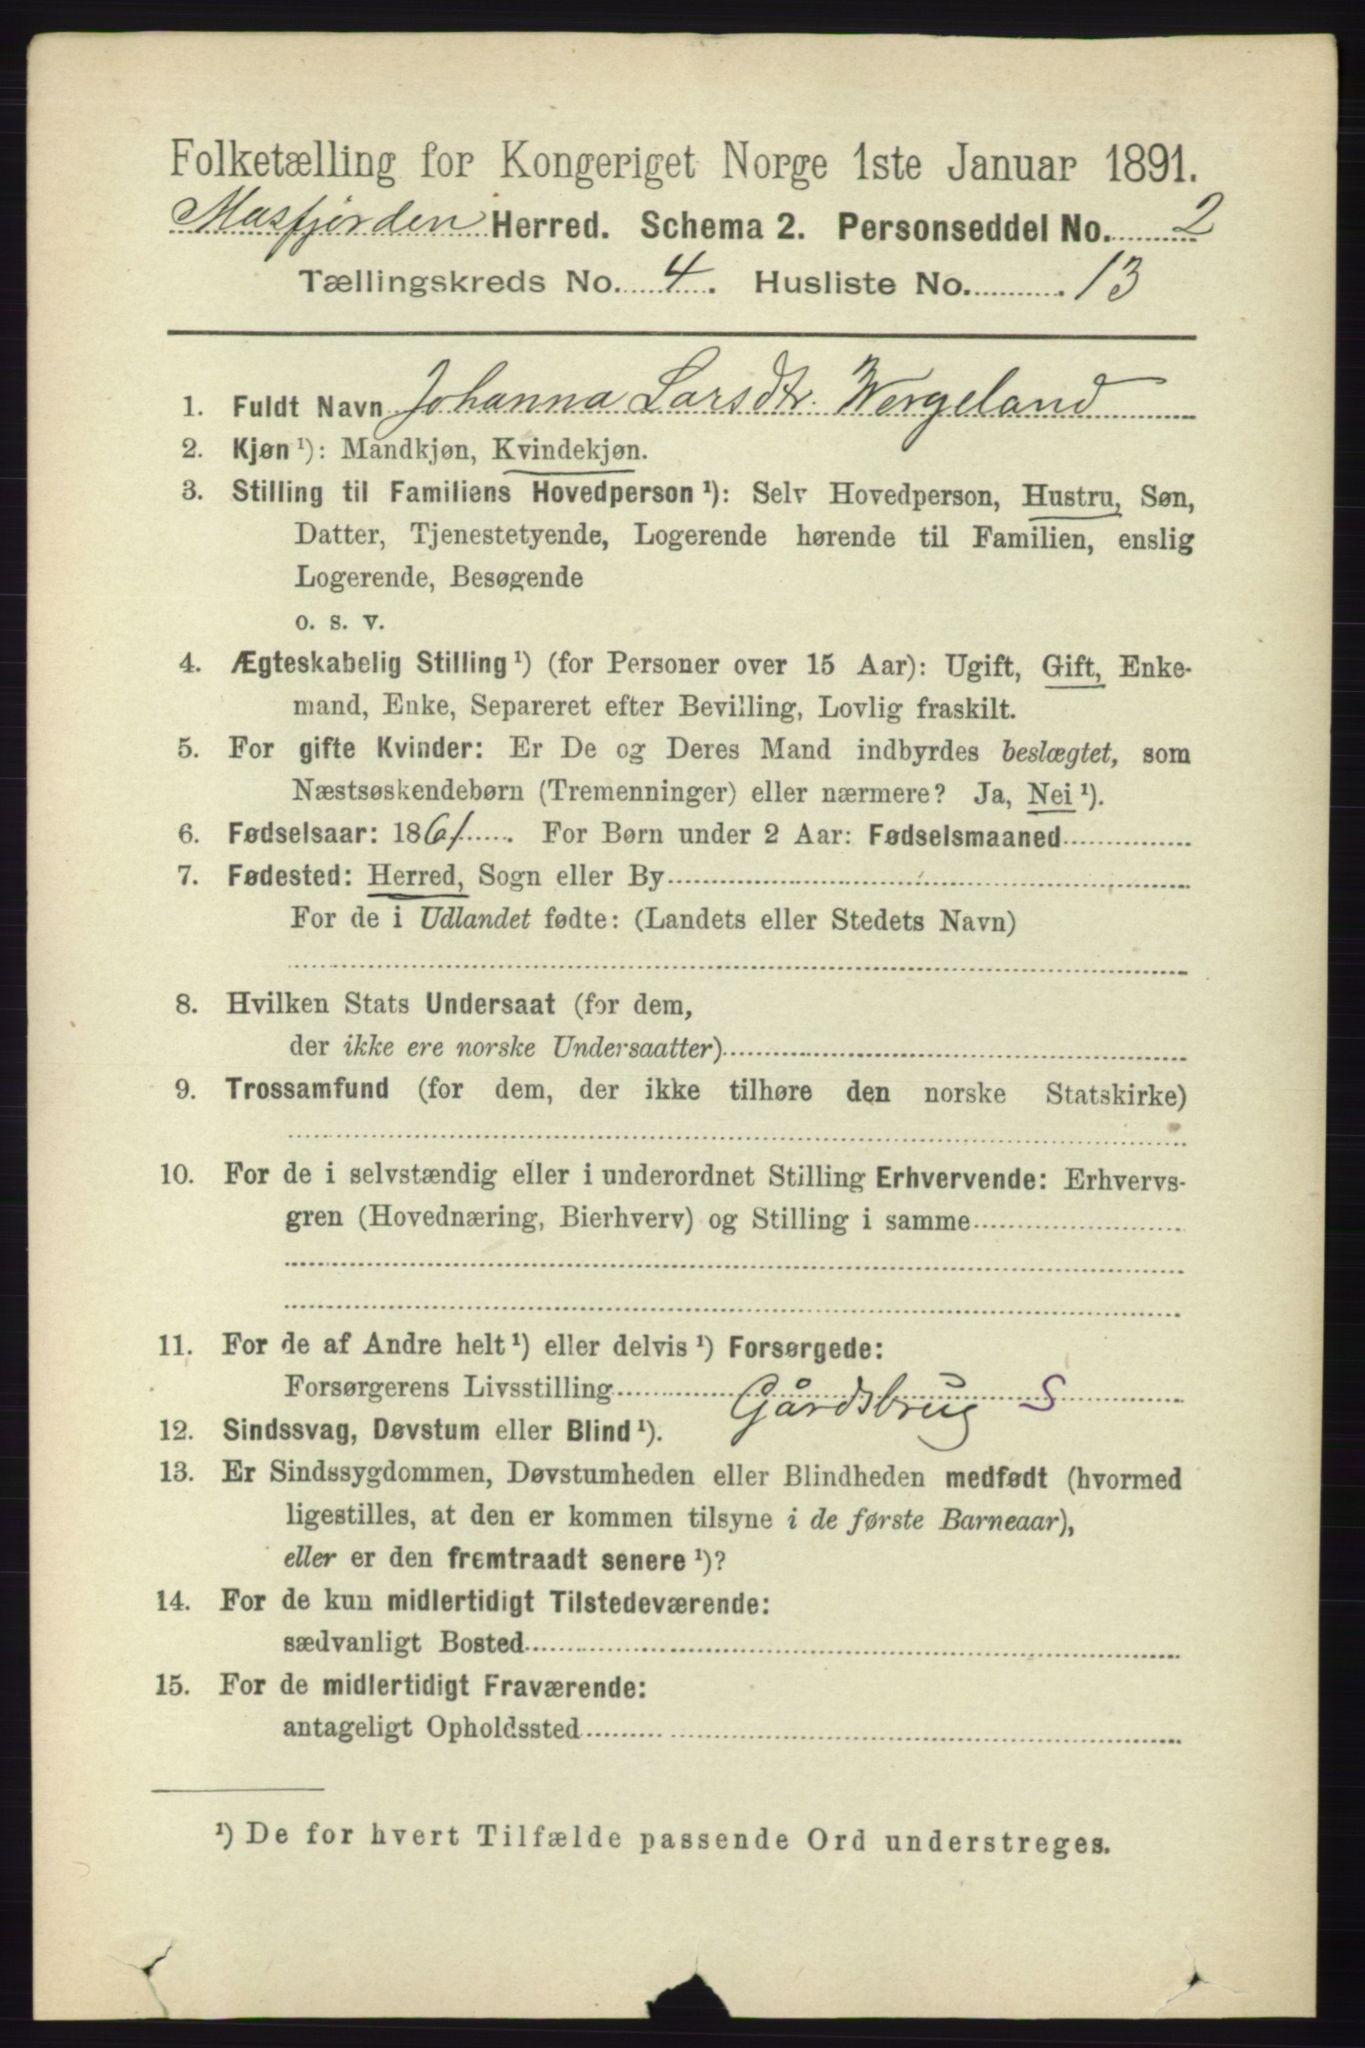 Folketælling for Kongeriget Norge 1ste Januar 1891.
Masfjorden Herred. Schema 2. Personseddel No. 2
Tællingskreds No. 4. Husliste No. 13
1. Fuldt Navn Johanna Larsdtr. Wergeland
2. Kjøn ¹): Mandkjøn, Kvindekjøn.
3. Stilling til Familiens Hovedperson ¹): Selv Hovedperson, Hustru, Søn,
Datter, Tjenestetyende, Logerende hørende til Familien, enslig
Logerende, Besøgende
o. s. v.
4. Ægteskabelig Stilling ¹) (for Personer over 15 Aar): Ugift, Gift, Enke-
mand, Enke, Separeret efter Bevilling, Lovlig fraskilt.
5. For gifte Kvinder: Er De og Deres Mand indbyrdes beslægtet, som
Næstsøskendebørn (Tremenninger) eller nærmere? Ja, Nei ¹).
6. Fødselsaar: 1861. For Børn under 2 Aar: Fødselsmaaned
7. Fødested: Herred, Sogn eller By
For de i Udlandet fødte: (Landets eller Stedets Navn)
8. Hvilken Stats Undersaat (for dem,
der ikke ere norske Undersaatter)
9. Trossamfund (for dem, der ikke tilhøre den norske Statskirke)
10. For de i selvstændig eller i underordnet Stilling Erhvervende: Erhvervs-
gren (Hovednæring, Bierhverv) og Stilling i samme
11. For de af Andre helt ¹) eller delvis ¹) Forsørgede:
Forsørgerens Livsstilling Gårdsbrug S
12. Sindssvag, Døvstum eller Blind ¹).
13. Er Sindssygdommen, Døvstumheden eller Blindheden medfødt (hvormed
ligestilles, at den er kommen tilsyne i de første Barneaar),
eller er den fremtraadt senere ¹)?
14. For de kun midlertidigt Tilstedeværende:
sædvanligt Bosted
15. For de midlertidigt Fraværende:
antageligt Opholdssted
¹) De for hvert Tilfælde passende Ord understreges.